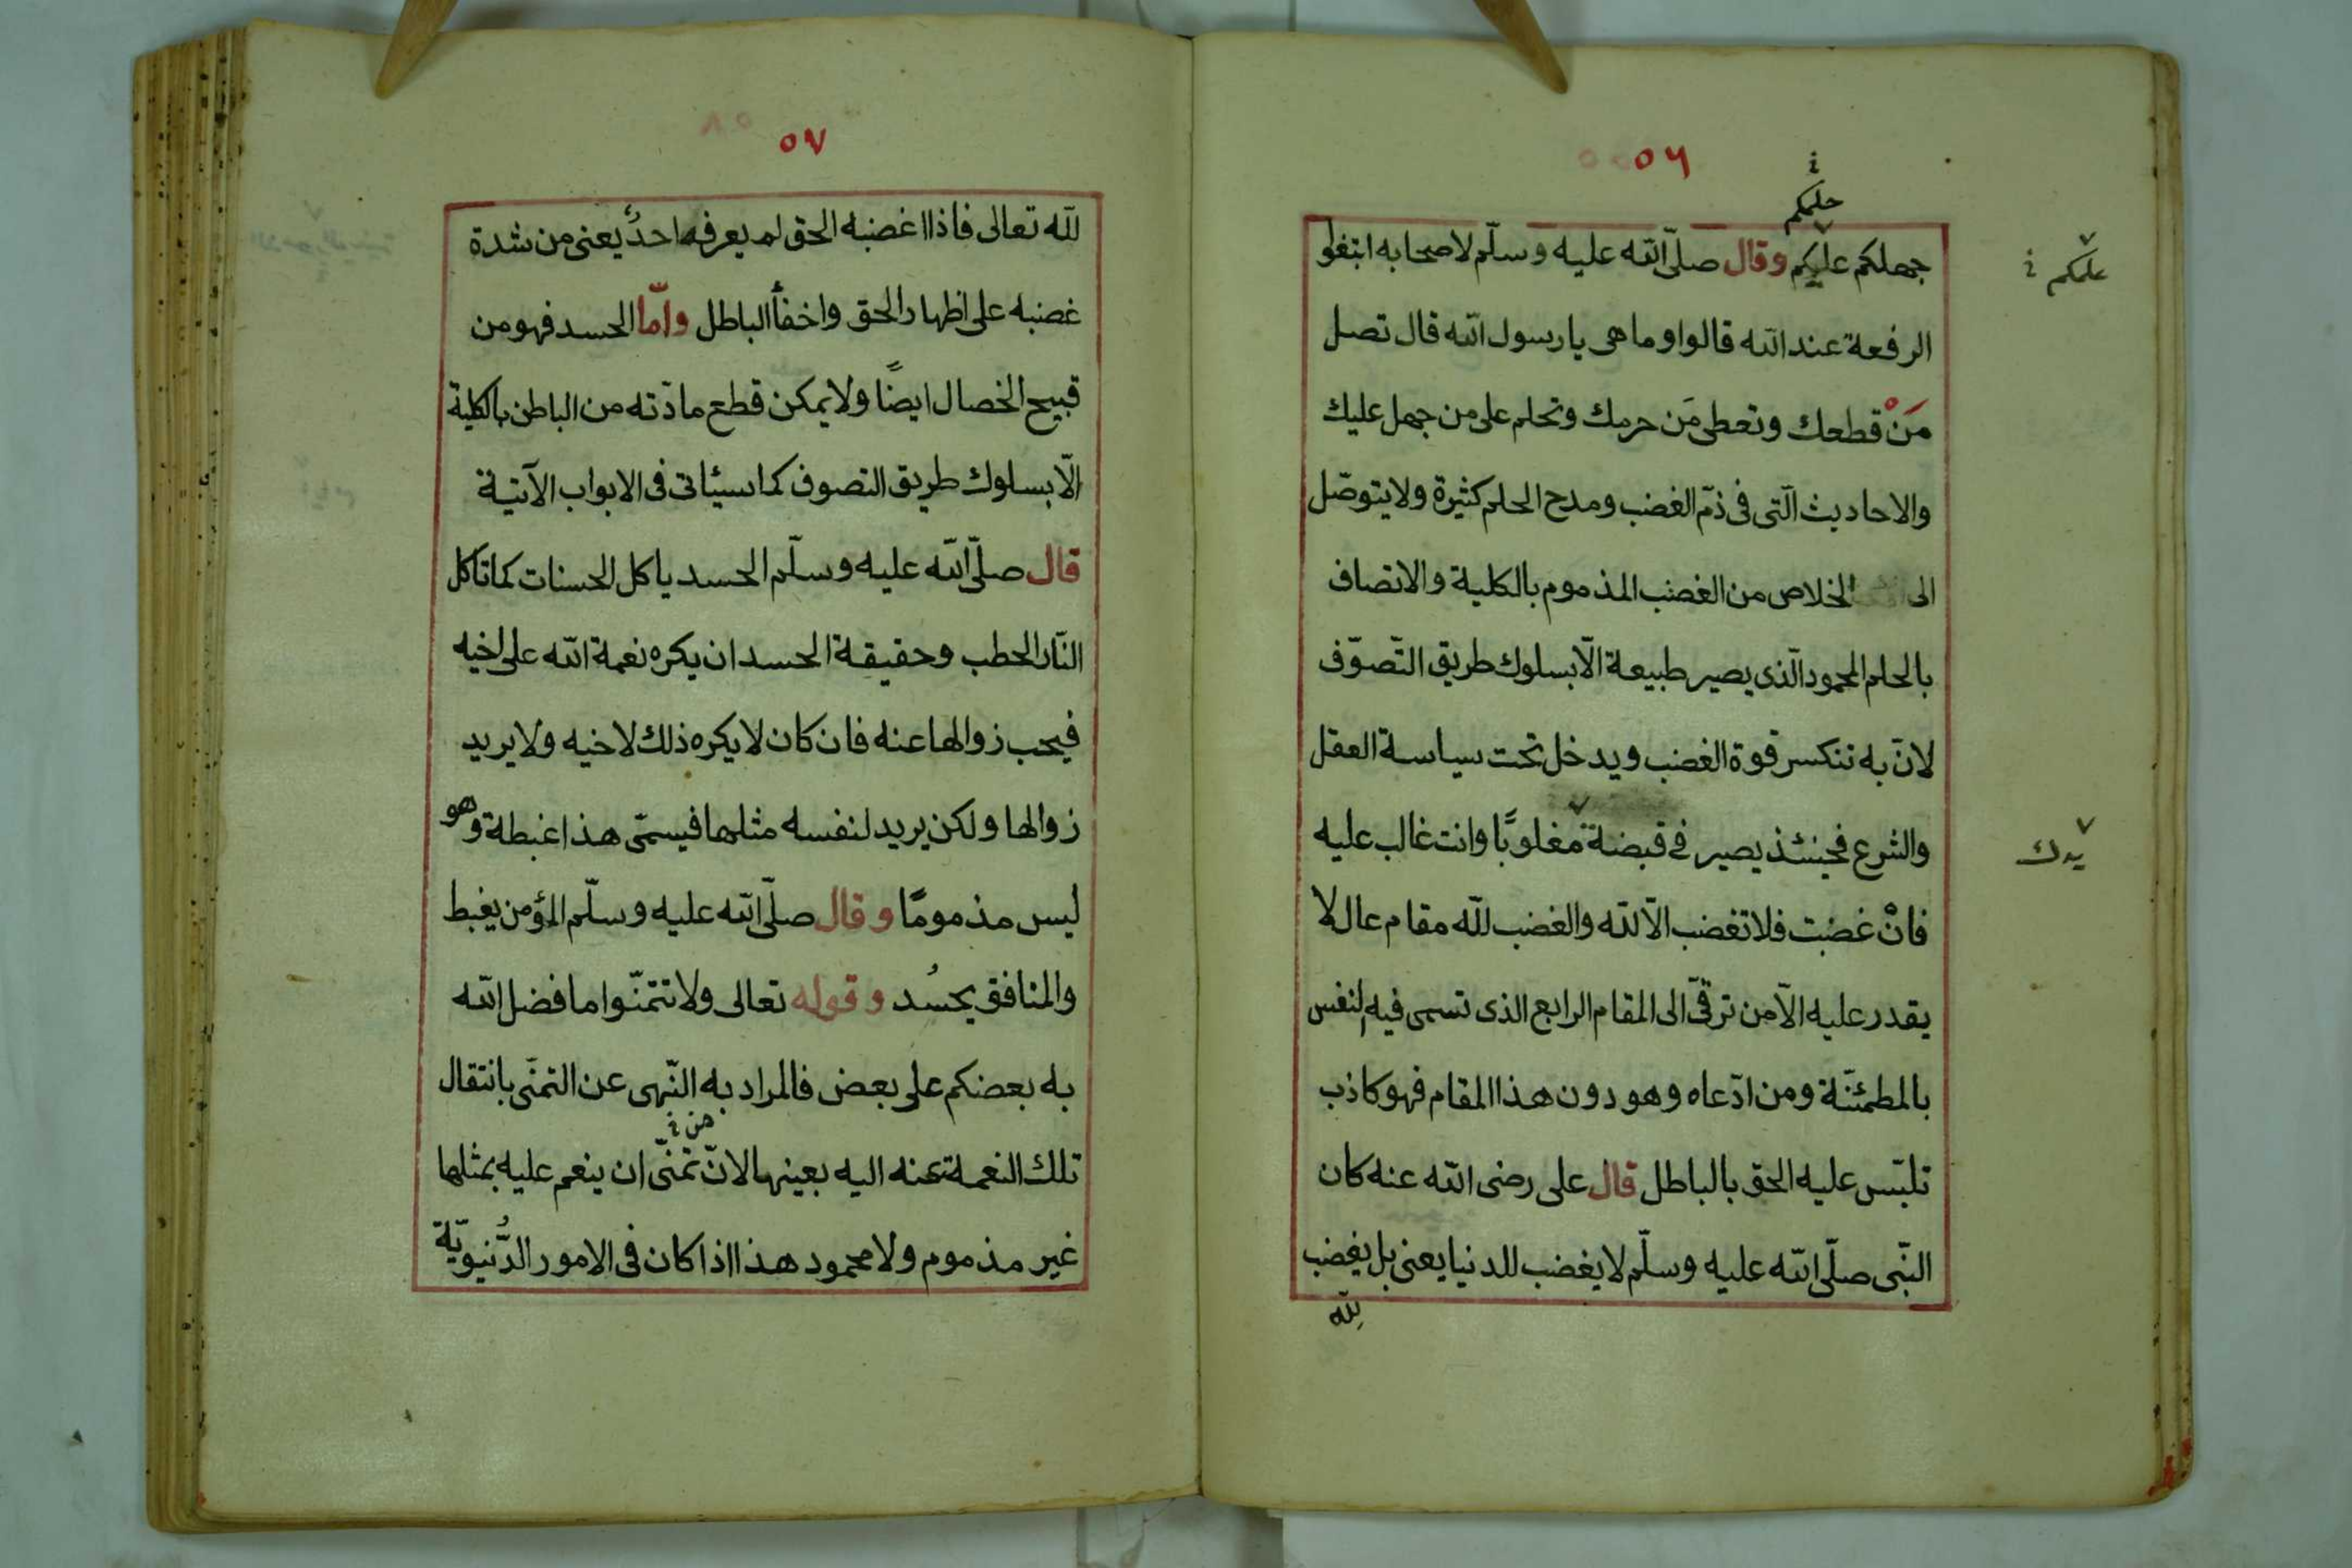 ٥٦
حلمكم
جهلكم عليكم وقال صلّى الله عليه وسلّم لاصحابه ابتغوا
علمكم
الرفعة عند الله قالوا وما هى يا رسول الله قال تصل
مَنْ قطعك وتعطى مَن حرمك وتحلم على من جهل عليك
والاحاديث الّتى فى ذمّ الغضب ومدح الحلم كثيرة ولا يتوصّل
الى الخلاص من الغضب المذموم بالكلية والاتصاف
بالحلم المحمود الّذى يصير طبيعة الّا بسلوك طريق التّصوّف
لانّ به تنكسر قوة الغضب ويدخل تحت سياسة العقل
والشرع فحينئذ يصير فى قبضة مغلوبًا وانت غالب عليه
يدك
فانْ غضبت فلا تغضب الّا لله والغضب لله مقام عال لا
يقدر عليه الّا من ترقّى الى المقام الرابع الذى تسمى فيه النفس
بالمطمئنّة ومن ادّعاه وهو دون هذا المقام فهو كاذب
تلبّس عليه الحق بالباطل قال على رضى الله عنه كان
النّبى صلّى الله عليه وسلّم لا يغضب للدنيا يعنى بل يغضب
لله
٥٧
لله تعالى فاذا اغضبه الحق لم يعرفه احدٌ يعنى من شدة
غضبه على اظهار الحق واخفأ الباطل وامّا الحسد فهو من
قبيح الخصال ايضًا ولا يمكن قطع مادّته من الباطن بالكلية
الّا بسلوك طريق التصوف كما سيئاتى فى الابواب الآتية
قال صلّى الله عليه وسلّم الحسد ياكل الحسنات كما تاكل
النّار الحطب وحقيقة الحسد ان يكره نعمة الله على اخيه
فيحب زوالها عنه فان كان لا يكره ذلك لاخيه ولا يريد
زوالها ولكن يريد لنفسه مثلها فيسمّى هذا غبطة وهو
ليس مذمومًا وقال صلّى الله عليه وسلّم المؤمن يغبط
والمنافق يحسُد وقوله تعالى ولا تتمنّوا ما فضل الله
به بعضكم على بعض فالمراد به النّهى عن التمنّى بانتقال
تلك النعمة عنه اليه بعينها لانّ تمنّى ان ينعم عليه بمثلها
غير مذموم ولا محمود هذا اذا كان فى الامور الدُّنيويّة